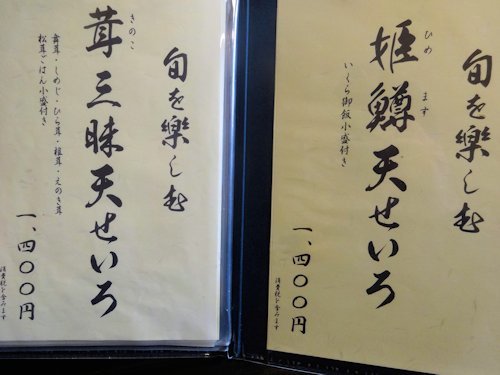 旬を楽しむ
姫鱒天せいろ
ひめ ます
いくら御飯小盛付き
一、四〇〇円
消費税を含みます
旬を楽しむ
茸三昧天せいろ
きのこ
舞茸・しめじ・ひら茸・椎茸・えのき茸
松茸ごはん小盛付き
一、四〇〇円
消費税を含みます